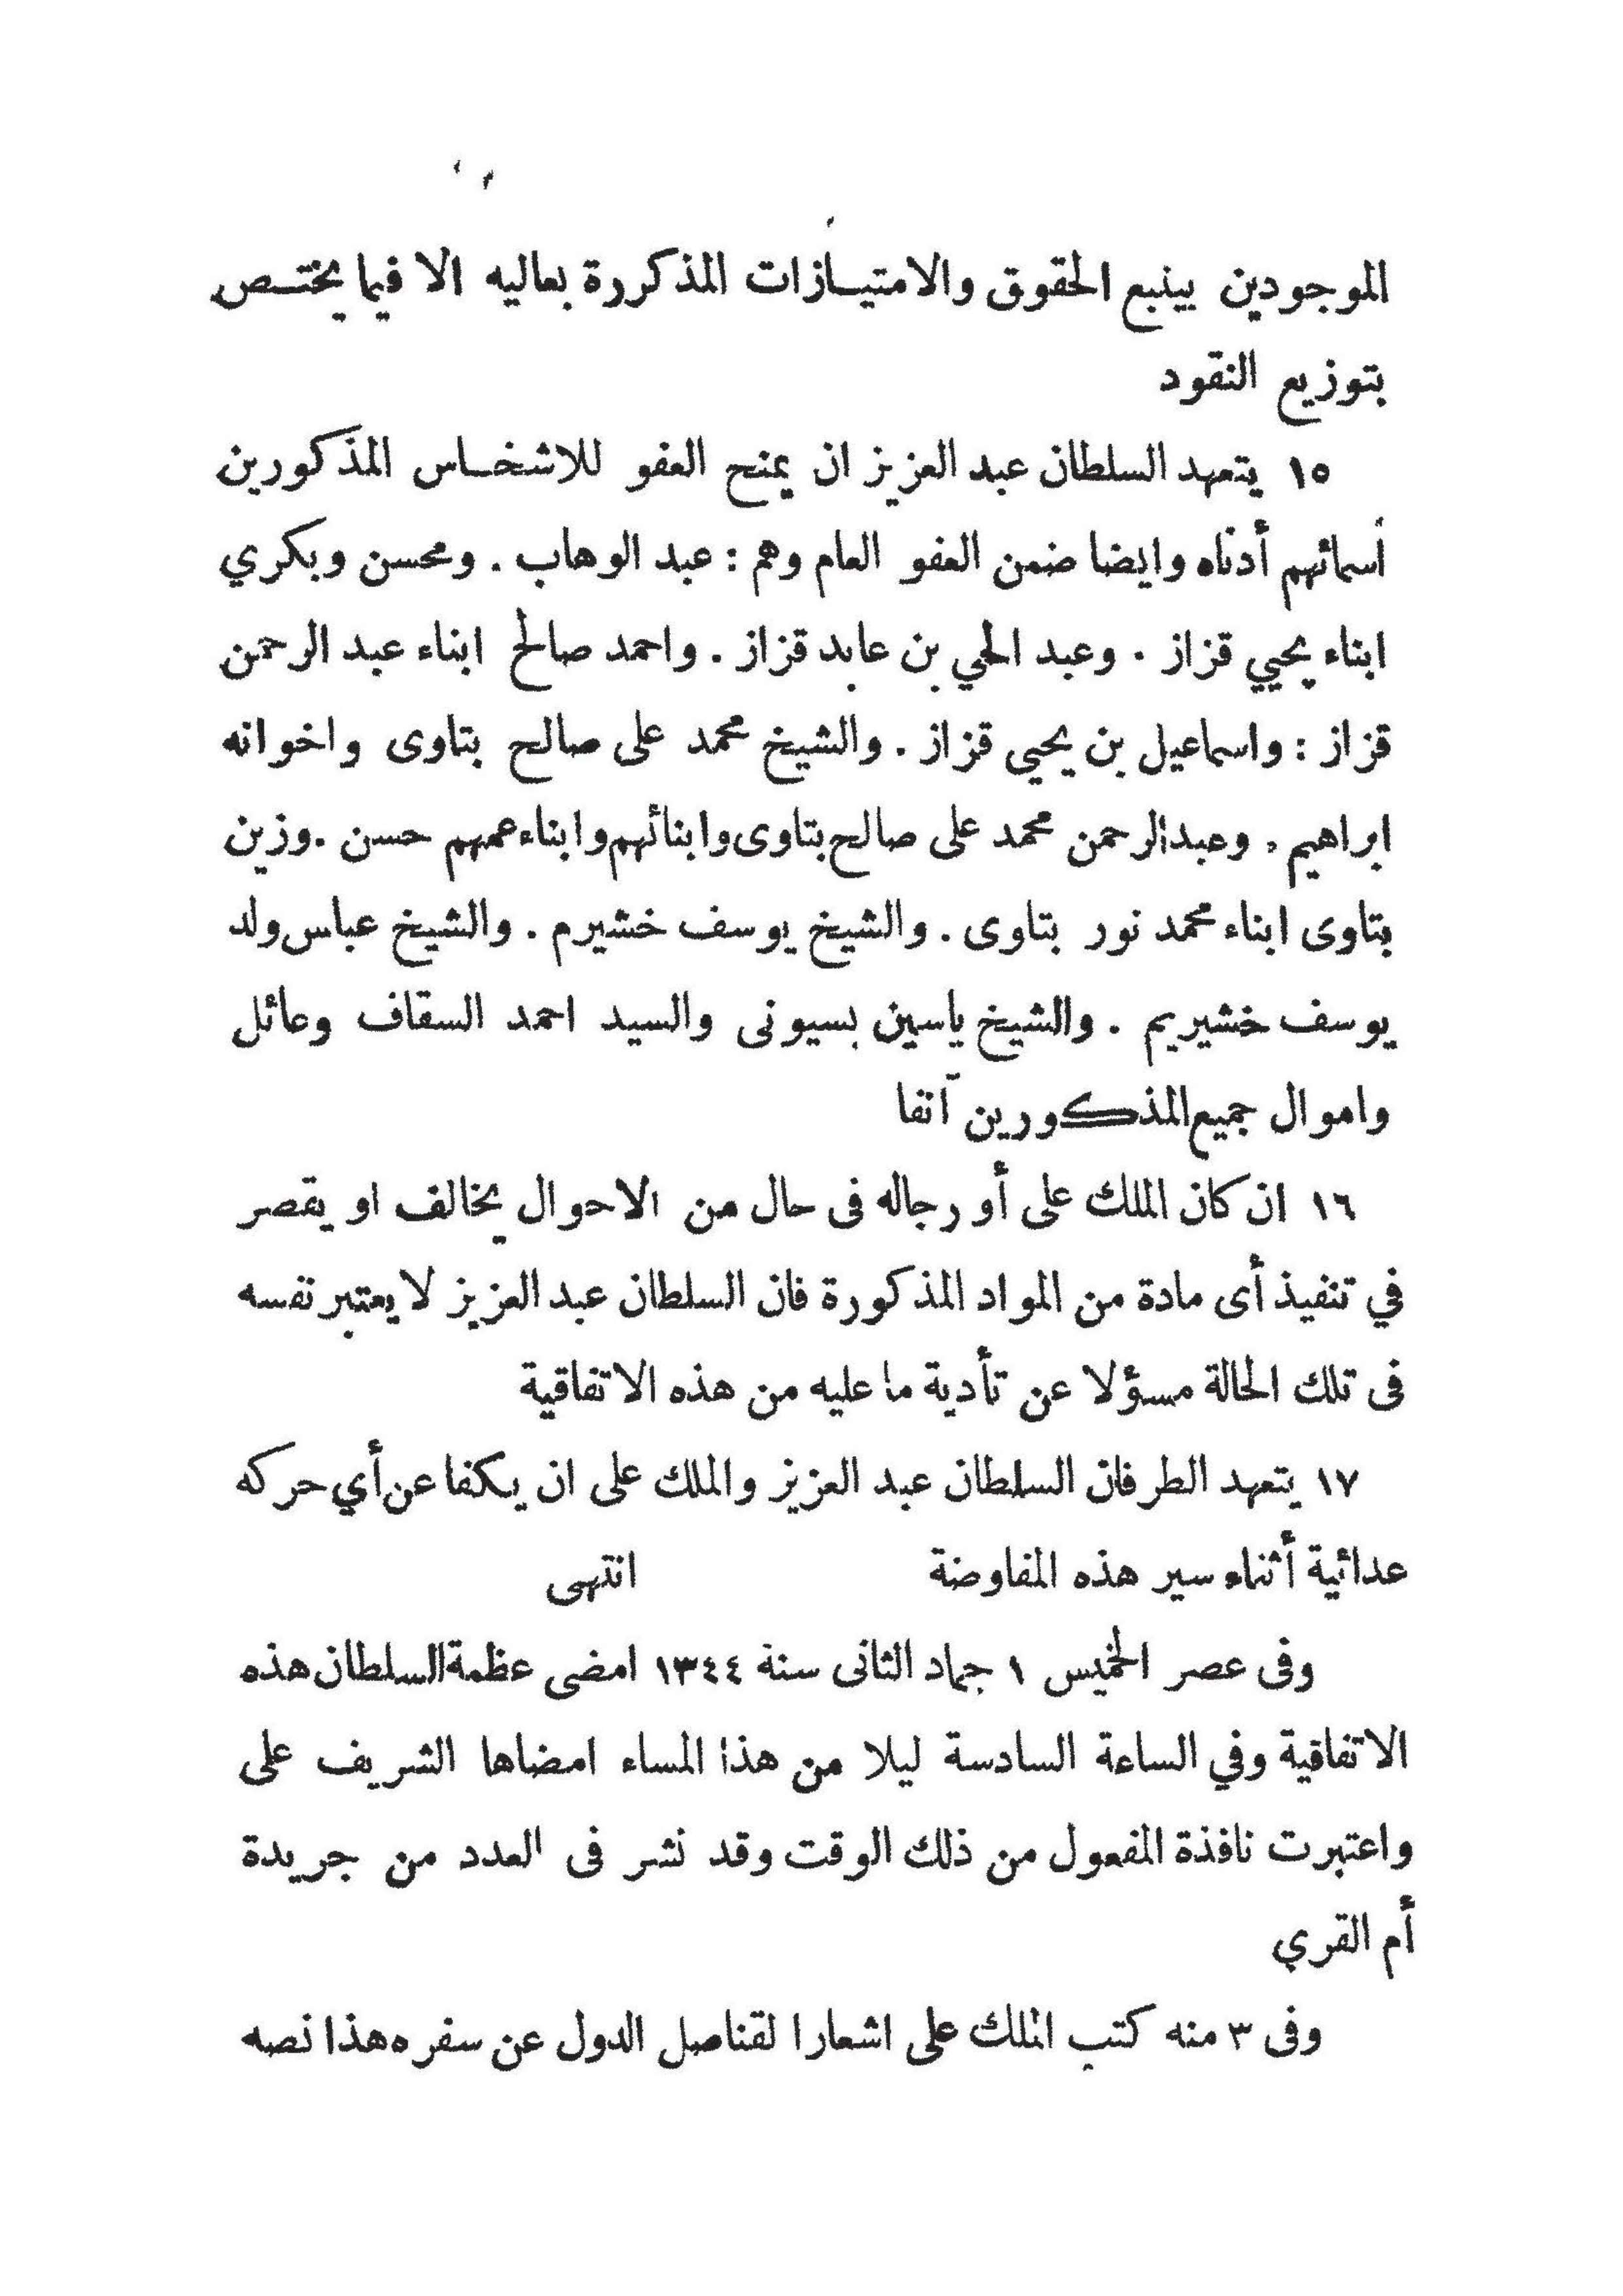 الموجودين بينبع الحقوق والامتيازات المذكررة بعاليه الا فيما يختص
بتوزيع النقود
١٥ يتعهد السلطان عبد العزيز ان يمنح العفو للاشخاس المذكورين
أسمائهم أدناه وايضا ضمن العفو العام وهم : عبد الوهاب . ومحسن وبكري
ابناء يحيي قزاز . وعبد الحي بن عابد قزاز . واحمد صالح ابناء عبد الرحمن
قزاز : واسماعيل بن يحيى قزاز . والشيخ محمد على صالح بتاوى واخوانه
ابراهيم . وعبدالرحمن محمد على صالح بتاوى وابنائهم وابناء عمهم حسن . وزين
بتاوى ابناء محمد نور بتاوى . والشيخ يوسف خشيرم . والشيخ عباس ولد
يوسف خشيريم . والشيخ ياسين بسيونى والسيد احمد السقاف وعائل
واموال جميع المذكورين آنفا
١٦ ان كان الملك على أو رجاله فى حال من الاحوال يخالف او يقصر
في تنفيذ أى مادة من المواد المذكورة فان السلطان عبد العزيز لا يعتبر نفسه
فى تلك الحالة مسؤلا عن تأدية ما عليه من هذه الاتفاقية
١٧ يتعهد الطرفان السلطان عبد العزيز والملك على ان يكفا عن أي حركه
عدائية أثناء سير هذه المفاوضة انتهى
وفى عصر الخميس ١ جماد الثانى سنة ١٣٤٤ امضى عظمة السلطان هذه
الاتفاقية وفي الساعة السادسة ليلا من هذا المساء امضاها الشريف على
واعتبرت نافذة المفعول من ذلك الوقت وقد نشر فى العدد من جريدة
أم القري
وفى ٣ منه كتب الملك على اشعارا لقناصل الدول عن سفره هذا نصه